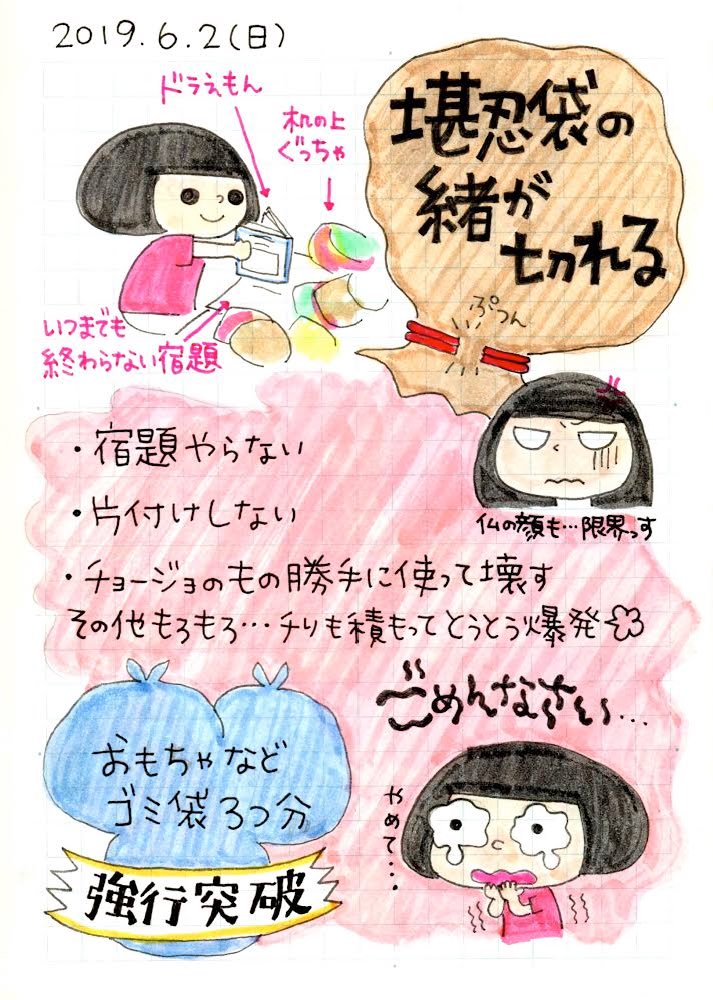 2019.6.2(日)
ドラえもん
机の上
ぐっちゃ
堪忍袋の
緒が
切れる
ぷつん
いつまでも
終わらない宿題
・宿題やらない
・片付けしない
仏の顔も…限界っす
・チョージョのもの勝手に使って壊す
その他もろもろ…チリも積もってとうとう爆発
ごめんなさい〜…
おもちゃなど
ゴミ袋3つ分
強行突破
やめて…